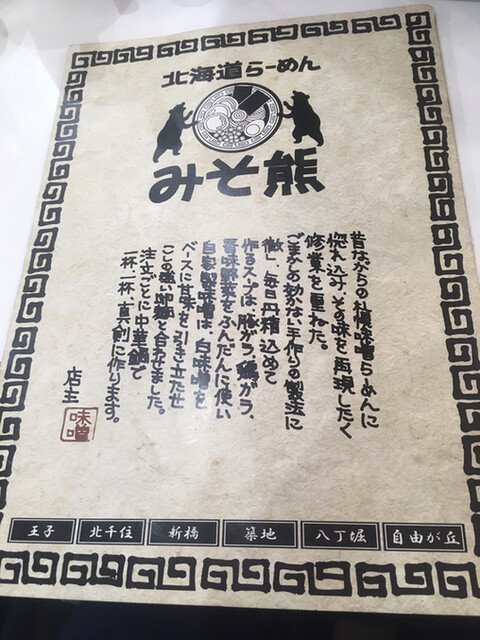 北海道らーめん
みそ熊
昔ながらの札幌味噌らーめんに
惚れ込み、その味を再現したく
修業を重ねた。
ごまかしの効かない手作りの製法に
徹し、毎日丹精込めて
作るスープは、豚がら、鶏がら、
香味野菜をふんだんに使い
自家製味噌は、白味噌を
ベースに甘味を引き立たせ
こしの強い卵麺と合わせました。
注文ごとに中華鍋で
一杯一杯、真剣に作ります。
店主
味噌
王子
北千住
新橋
築地
八丁堀
自由が丘